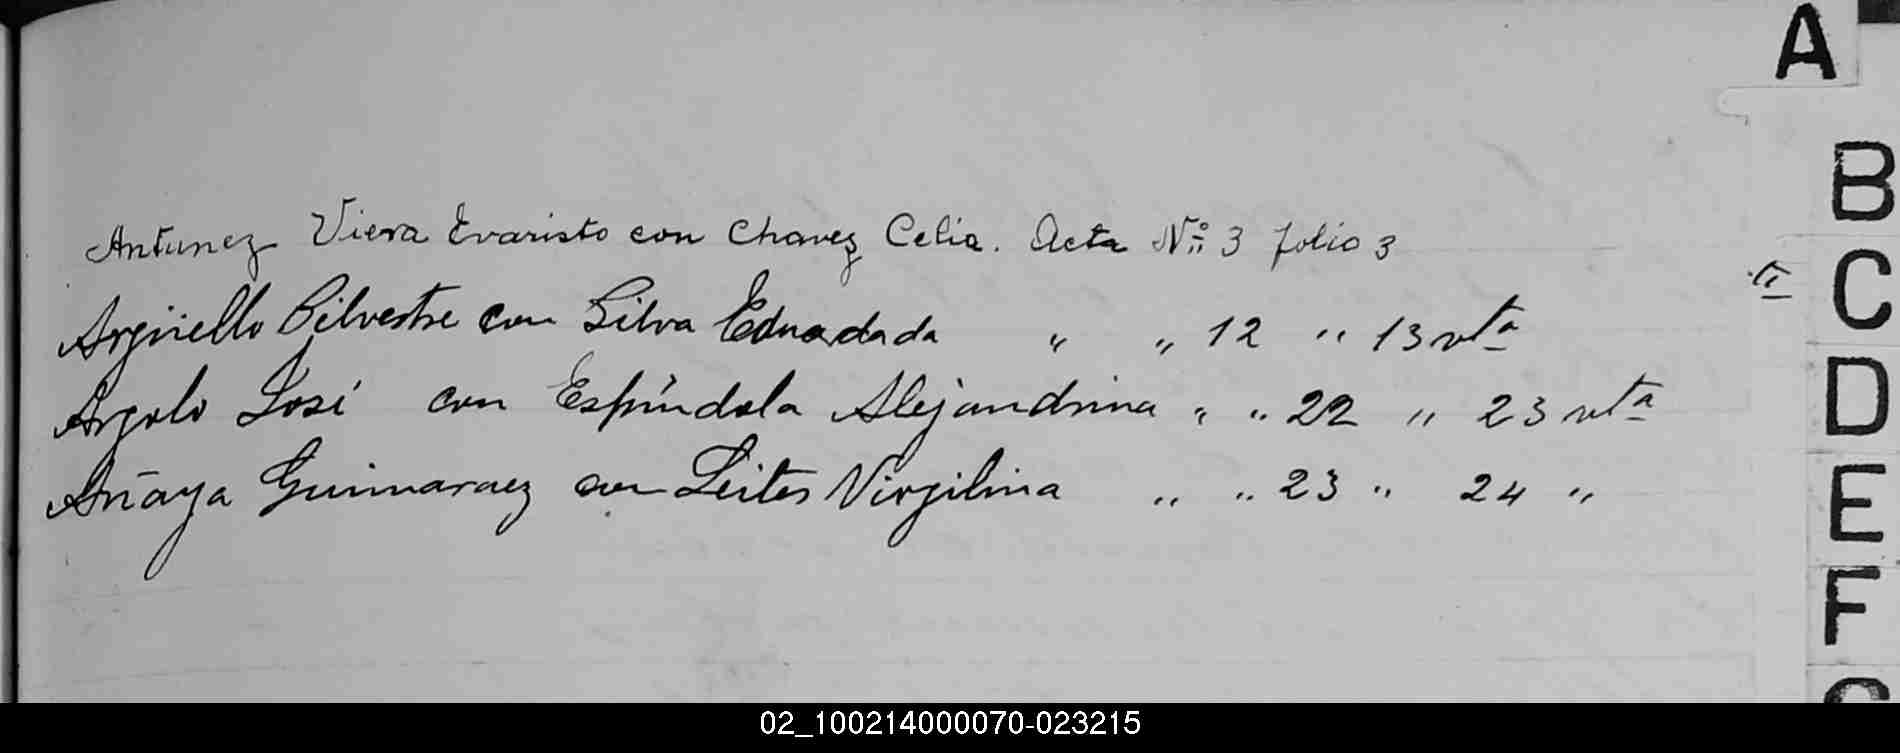 A
B
C
D
E
F
Antunez Viera Evaristo con Chavez Celia. Acta Nº 3 folio 3
Argüello Silvestre con Silva " " 12 " 13 vta
Argolo José con Espíndola Alejandrina " " 22 " 23 vta
Anaya Guimaraez con Leites Virgilina " " 23 " 24 "
02_100214000070-023215